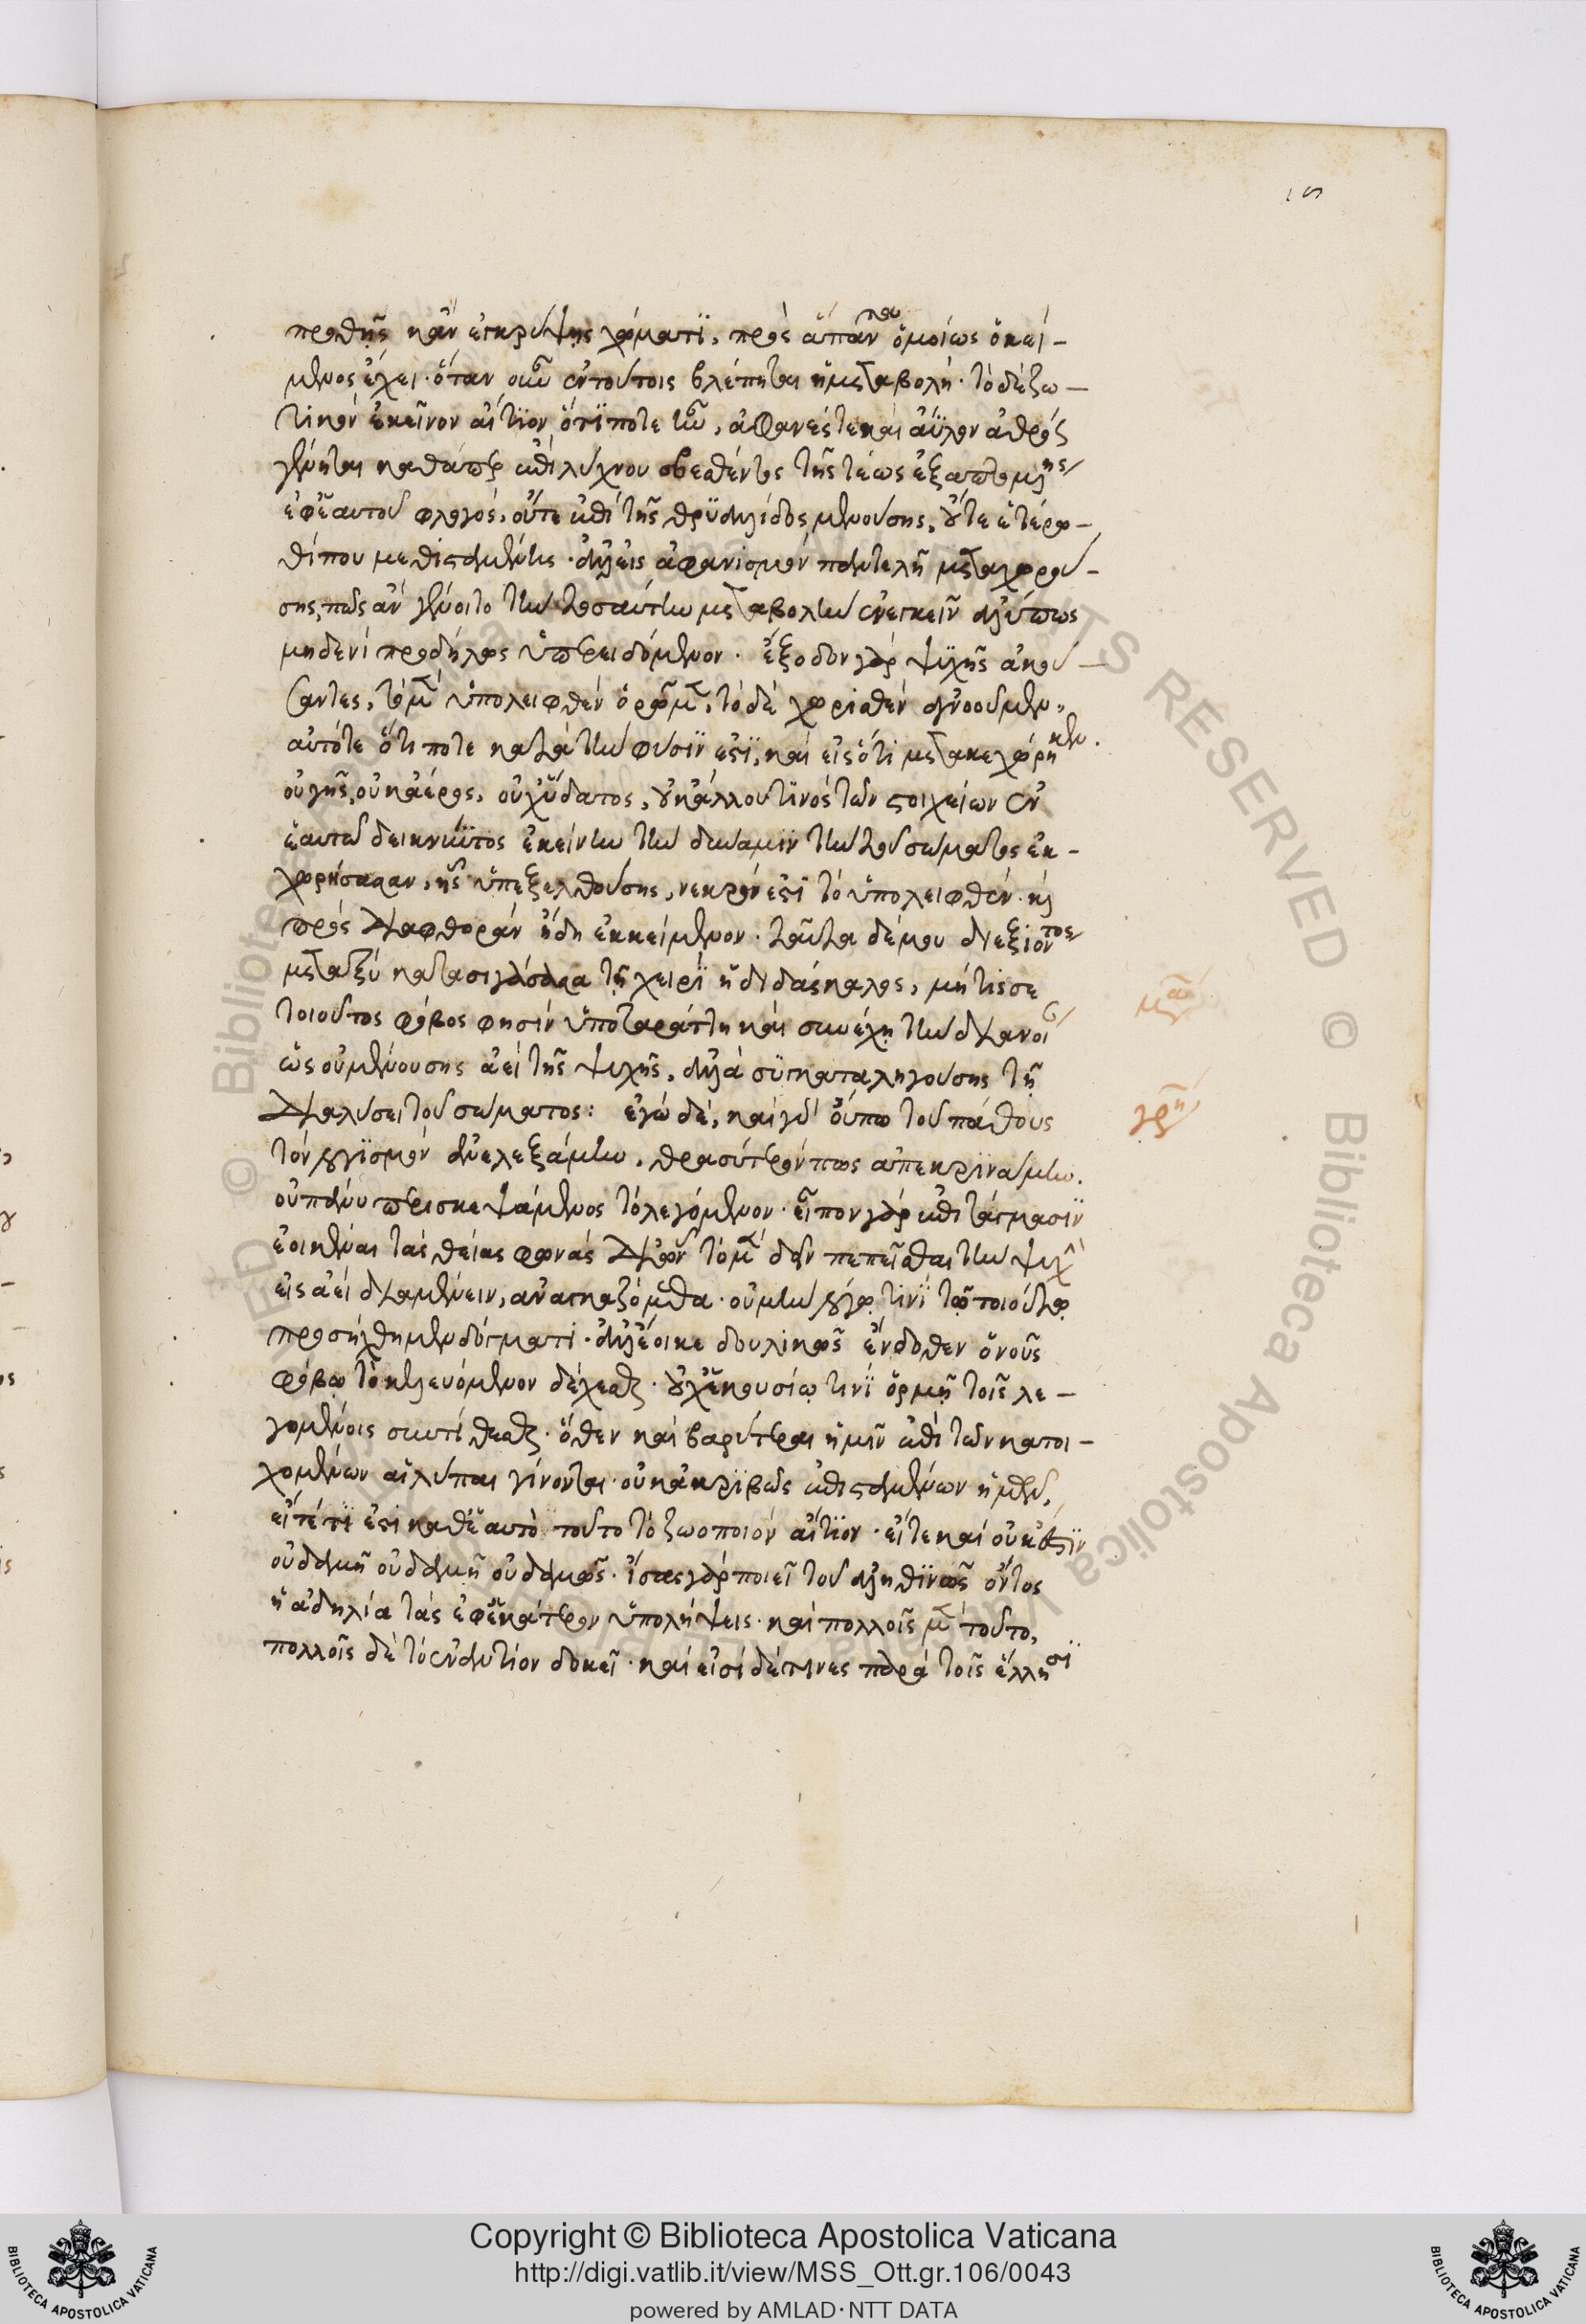 ις
προθῇς κἂν ἐγκρύψῃς χώματϊ, πρὸς ἅπαν που ὁμοίως ὁ κεί-
μενος ἔχει· ὅταν οὖν ἐν τούτοις βλέπηται ἡ μεταβολή· τὸ δὲ ζω-
τικὸν ἐκεῖνον αἴτϊον ὅτϊποτε ἦν, ἀφανές τε καὶ ἄϋλον ἀθρόως
γένηται καθάπερ ἐπὶ λύχνου σβεσθέντος τῆς τέως ἐξαπτομένης
ἐφ ἑαυτοῦ φλογός, οὔτε ἐπὶ τῆς θρυαλλίδος μενούσης, οὔτε ἑτέρω-
θί που μεθισταμένης· ἀλλ εἰς ἀφανισμὸν παντελῆ μεταχωρού-
σης, πῶς ἂν γένοιτο τὴν τοσαύτην μεταβολὴν ἐνεγκεῖν ἀλύπως
μηδενὶ προδήλως ὑπερειδόμενον· ἔξοδον γὰρ ψυχῆς ἀκού-
σαντες, τὸ μὲν ὑπολειφθὲν ὁρῶμεν, τὸ δὲ χωρισθὲν ἀγνοοῦμεν,
αὐτό τε ὅτι ποτε κατὰ τὴν φύσϊν ἐστϊ, καὶ εἰς ὅτι μετακεχώρηκεν.
οὐ γῆς, οὐκ ἀέρος, οὐχ ὕδατος, οὐκ ἄλλου τϊνὸς τῶν στοιχείων ἐν
ἑαυτῶ δεικνύντος ἐκείνην τὴν δύναμϊν τὴν τοῦ σώματος ἐκ-
χωρήσασαν, ἧς ὑπεξελθούσης, νεκρόν ἐστϊ τὸ ὑπολειφθὲν καὶ
πρὸς διαφθορὰν ἤδη ἐκκείμενον· ταῦτα δέ μου διεξιόντος
μεταξὺ κατασιγάσασα τῇ χειρϊ ἡ διδάσκαλος, μή τίς σε
τοιοῦτος φόβος φησὶν ὑποταράττῃ καὶ συνέχῃ τὴν διάνοι
ὡς οὐ μενούσης ἀεὶ τῆς ψυχῆς, ἀλλὰ συγκαταληγούσης τῇ
διαλύσει τοῦ σώματος: ἐγὼ δὲ, καὶ γὰρ οὔπω τοῦ πάθους
τὸν λογϊσμὸν ἀνελεξάμην, θρασύτερόν πως ἀπεκρϊνάμην.
οὐ πάνυ περισκεψάμενος τὸ λεγόμενον· εἶπον γὰρ ἐπιτάγμασϊν
ἐοικέναι τὰς θείας φωνὰς δι ὧν τὸ μὲν δεῖν πεπεῖσθαι τὴν ψυχὴν
εἰς ἀεὶ διαμένειν, ἀναγκαζόμεθα· οὐ μὴν λόγῳ τινϊ τῷ τοιούτῳ
προσήχθημεν δόγματι· ἀλλ ἔοικε δουλικῶς ἔνδοθεν ὁ νοῦς
φόβῳ τὸ κελευόμενον δέχεσθαι· οὐχ ἑκουσίῳ τινϊ ὁρμῇ τοῖς λε-
γομένοις συντίθεσθαι· ὅθεν καὶ βαρύτεραι ἡμῖν ἐπὶ τῶν κατοι-
χομένων αἱ λύπαι γίνονται· οὐκ ἀκρϊβῶς ἐπισταμένων ἡμῶν,
εἴτέ τϊ ἐστι καθ ἑαυτὸ τοῦτο τὸ ζωοποιὸν αἴτϊον· εἴτε καὶ οὐκ ἔστϊν
οὐδαμῆ οὐδαμῆ οὐδαμῶς· ἴσας γὰρ ποιεῖ τοῦ ἀληθϊνῶς ὄντος
ἡ ἀδηλία τὰς ἐφ ἑκάτερον ὑπολήψεις· καὶ πολλοῖς μὲν τοῦτο,
πολλοῖς δὲ τὸ ἐναντίον δοκεῖ· καὶ εἰσὶ δέ τινες παρὰ τοῖς ἕλλησϊ
Copyright © Biblioteca Apostolica Vaticana
http://digi.vatlib.it/view/MSS_Ott.gr.106/0043
powered by AMLAD · NTT DATA